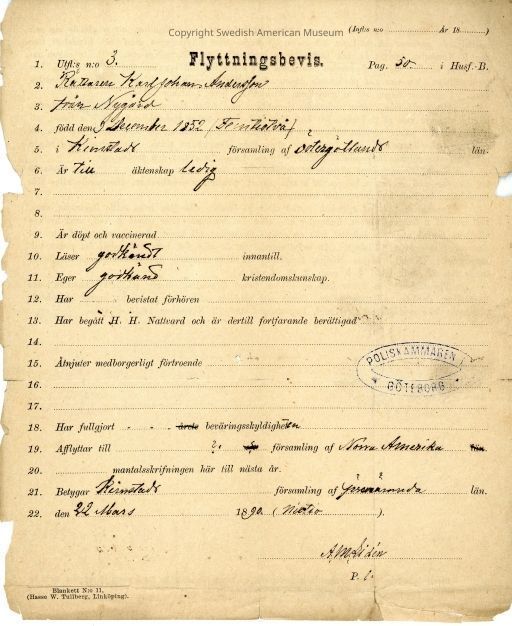 Copyright Swedish American Museum
(Infl:s n:o År 18 )
1. Utfl:s n:o 3. Flyttningsbevis. Pag. 50. i Husf.-B.
2. Rättaren Karl Johan Andersson
3. från Nygård
4. född den 9 December 1852 (Femtiotvå)
5. i Kimstads församling af Östergötlands län.
6. Är till äktenskap ledig
7.
8.
9. Är döpt och vaccinerad
10. Läser godkändt innantill.
11. Eger godkänd kristendomskunskap.
12. Har bevistat förhören
13. Har begått H. H. Nattvard och är dertill fortfarande berättigad
14.
15. Åtnjuter medborgerligt förtroende
POLISKAMMAREN
GÖTEBORG
16.
17.
18. Har fullgjort - - - årets beväringsskyldigheten
19. Afflyttar till församling af Norra Amerika län.
20. mantalsskrifningen här till nästa år.
21. Betygar Kimstads församling af län.
22. den 22 Mars 1890 (Nittio ).
A. M. Lidén
P. l.
Blankett N:o 11,
(Hasse W. Tullberg, Linköping).